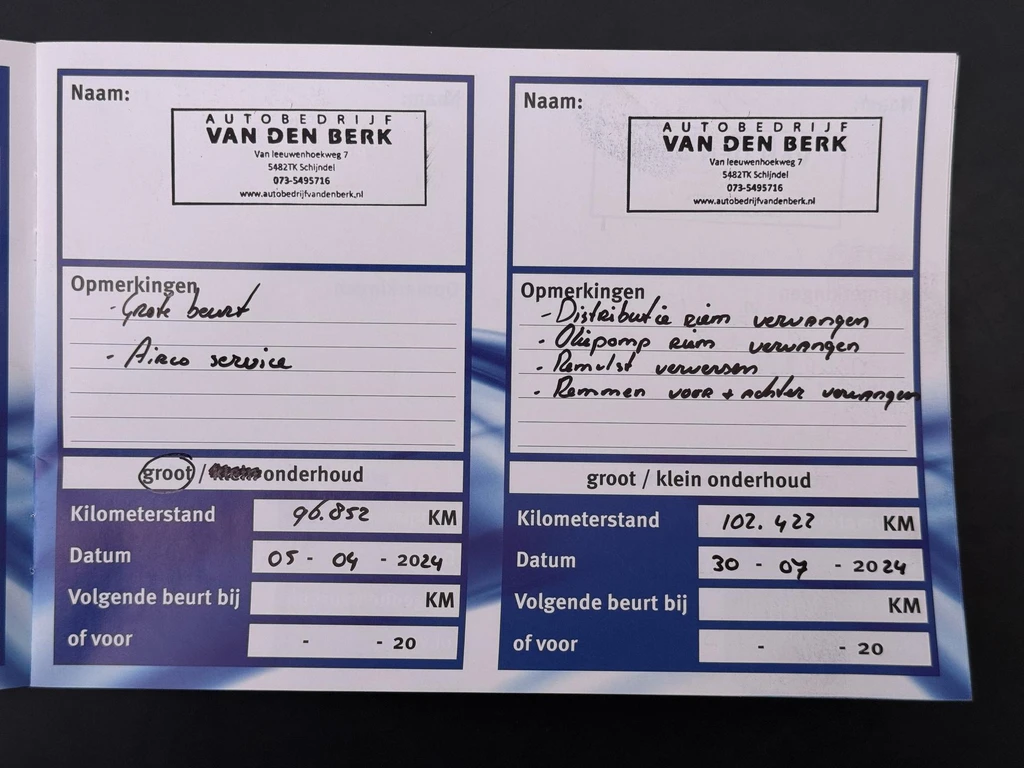 Naam:
AUTOBEDRIJF
VAN DEN BERK
Van leeuwenhoekweg 7
5482TK Schijndel
073-5495716
www.autobedrijfvandenberk.nl
Opmerkingen
- Grote beurt
- Airco service
groot / klein onderhoud
Kilometerstand 96.852 KM
Datum 05 - 04 - 2024
Volgende beurt bij KM
of voor - - 20
Naam:
AUTOBEDRIJF
VAN DEN BERK
Van leeuwenhoekweg 7
5482TK Schijndel
073-5495716
www.autobedrijfvandenberk.nl
Opmerkingen
- Distributie riem vervangen
- Oliepomp riem vervangen
- Remvlst verversen
- Remmen voor + achter vervangen
groot / klein onderhoud
Kilometerstand 102.422 KM
Datum 30 - 07 - 2024
Volgende beurt bij KM
of voor - - 20